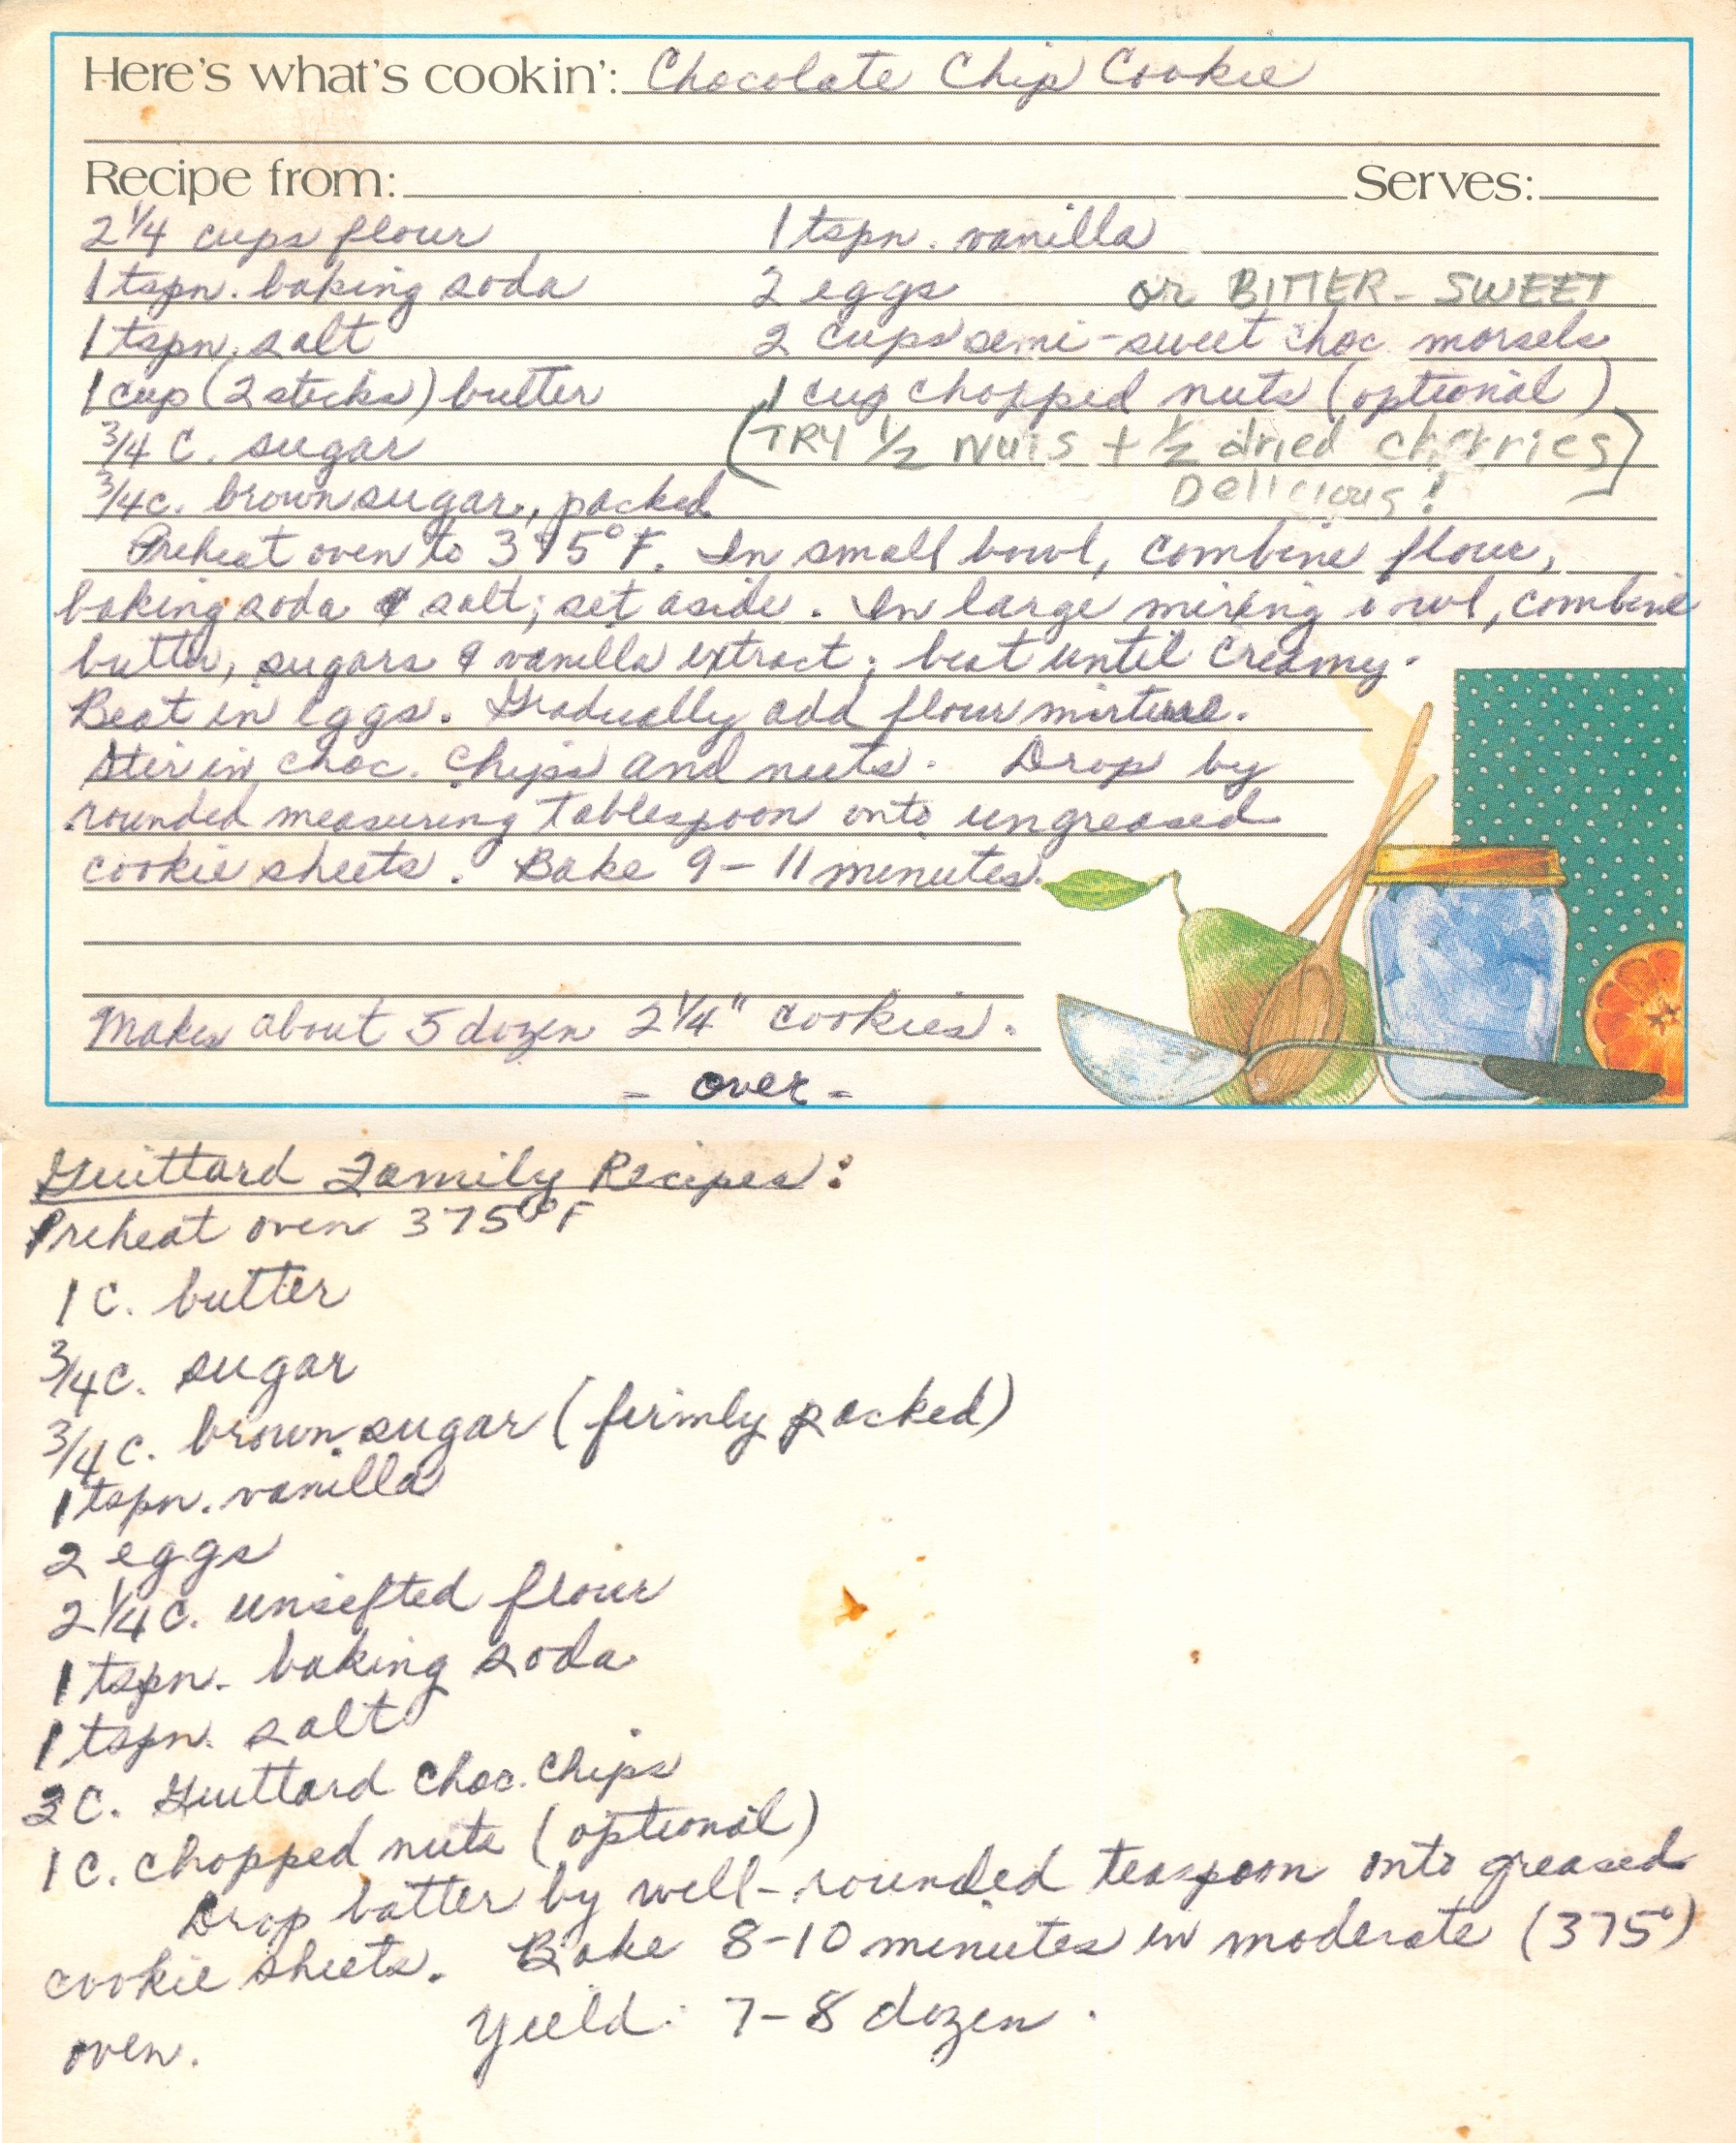 Here's what's cookin': Chocolate Chip Cookie
Recipe from: Serves:
2 1/4 cups flour
1 tspn. baking soda
1 tspn. salt
1 cup (2 sticks) butter
3/4 C. sugar
3/4 c. brown sugar, packed
1 tspn. vanilla
2 eggs
or BITTER-SWEET
2 cups semi-sweet choc. morsels
1 cup chopped nuts (optional)
(TRY 1/2 NUTS + 1/2 dried cherries
Delicious!)
Preheat oven to 375°F. In small bowl, combine flour,
baking soda & salt; set aside. In large mixing bowl, combine
butter, sugars & vanilla extract; beat until creamy.
Beat in eggs. Gradually add flour mixture.
Stir in choc. chips and nuts. Drop by
rounded measuring tablespoon onto ungreased
cookie sheets. Bake 9-11 minutes.
Makes about 5 dozen 2 1/4" cookies.
- over -
Guittard Family Recipes:
Preheat oven 375°F
1 C. butter
3/4 c. sugar
3/4 c. brown sugar (firmly packed)
1 tspn. vanilla
2 eggs
2 1/4 c. unsifted flour
1 tspn. baking soda
1 tspn. salt
2 C. Guittard Choc. Chips
1 C. chopped nuts (optional)
Drop batter by well-rounded teaspoon onto greased
cookie sheets. Bake 8-10 minutes in moderate (375°)
oven. Yield: 7-8 dozen.